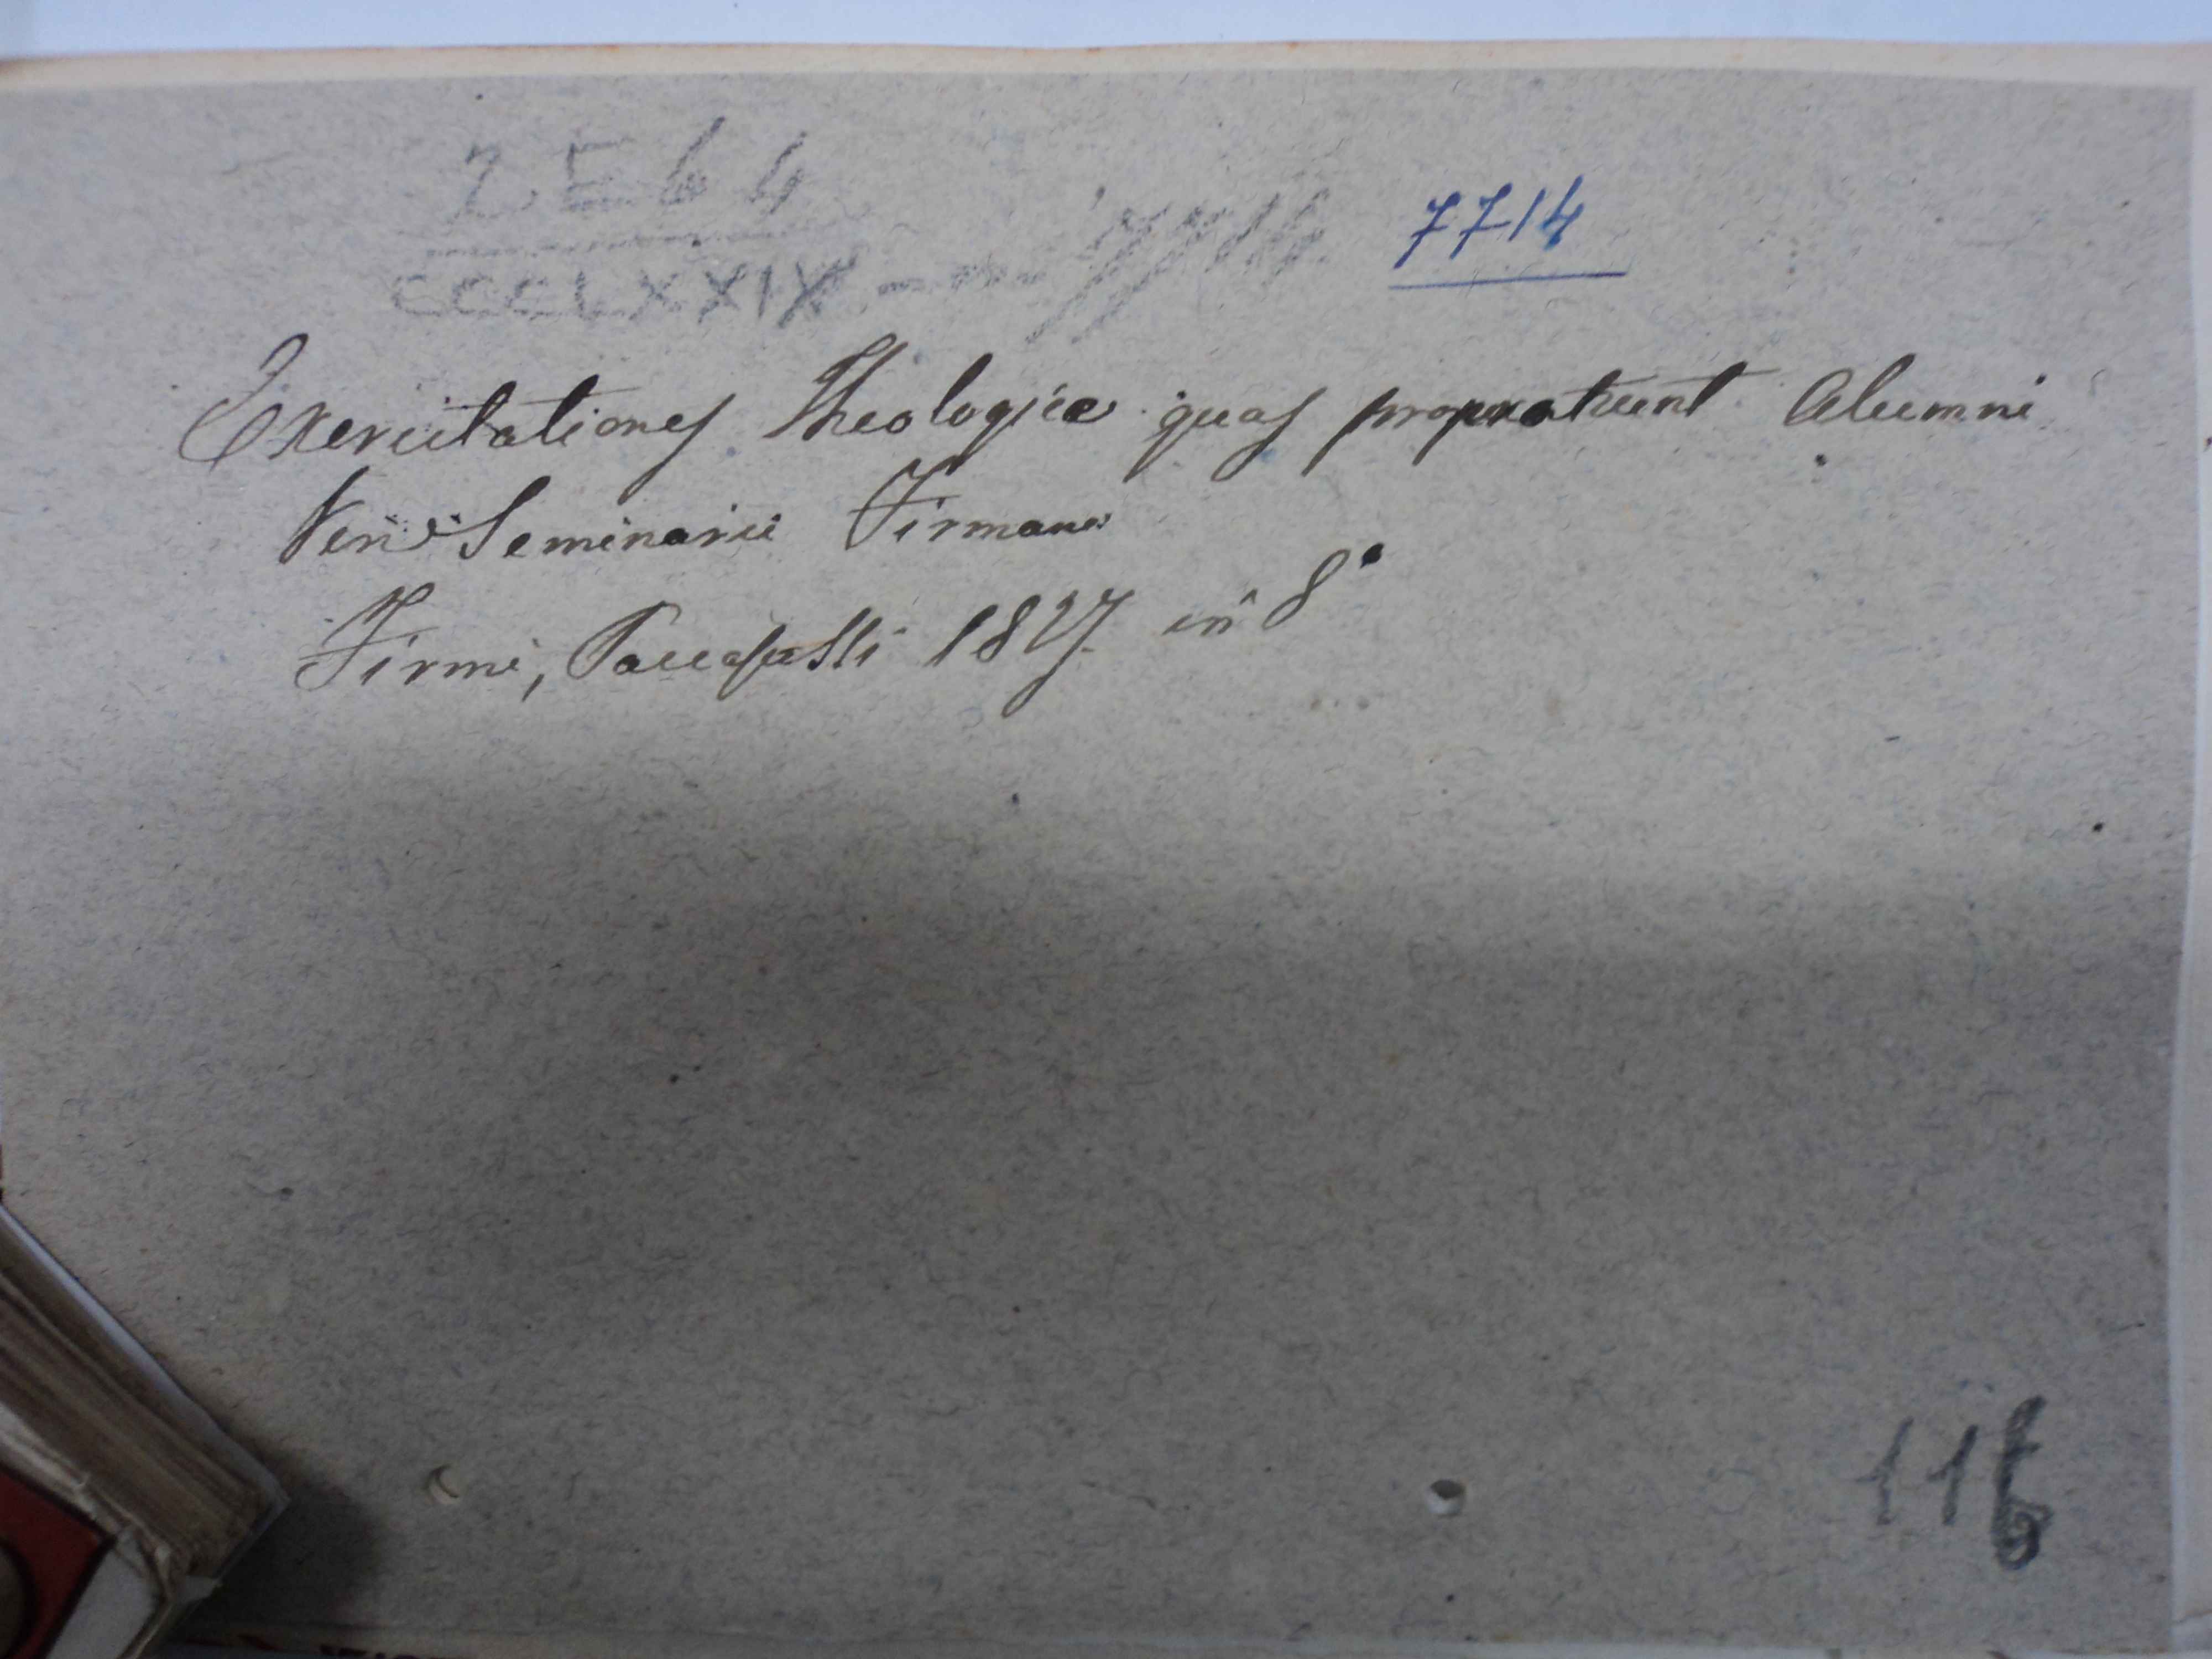 2564
CCCLXXIX - n. 7714 7714
Exercitationes Theologicæ quas proponebunt Alumni
Ven. Seminarii Firmani
Firmi, Paccasassi 1827 in 8°
116